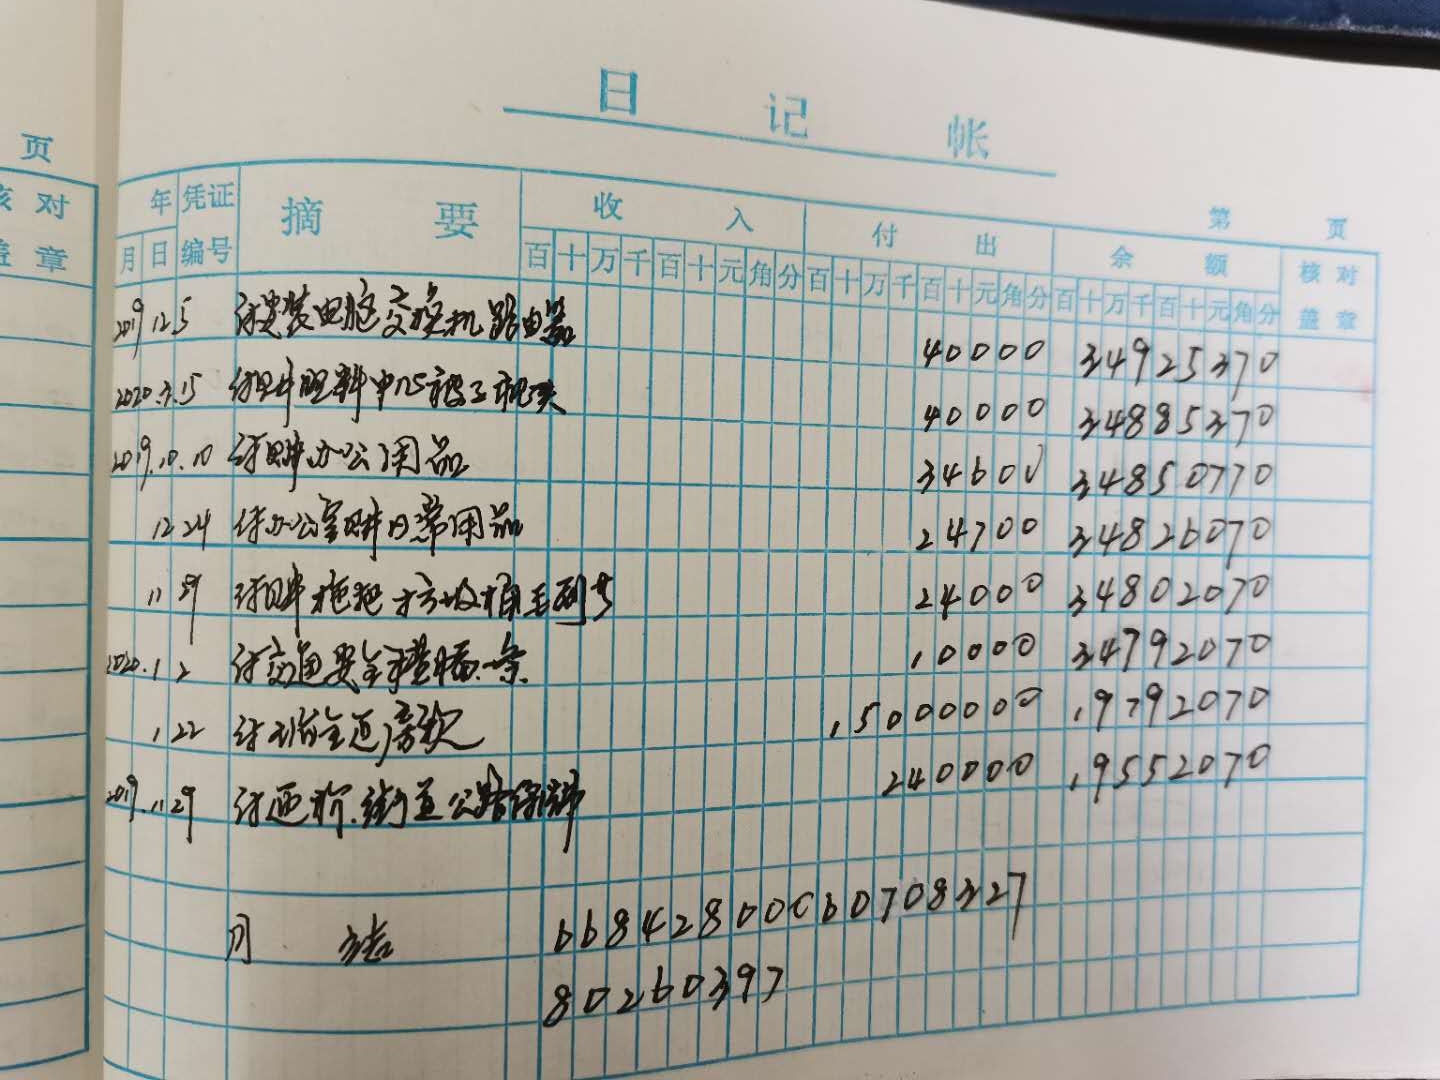 页
核 对
盖 章
日 记 帐
第 页
年 凭证 摘 要 收 入 付 出 余 额 核 对
月 日 编号 百十万千百十元角分 百十万千百十元角分 百十万千百十元角分 盖 章
2019 12 5 付安装电脑交换机路由器 40000 34925370
2020.3.15 付 中心 40000 34885370
2019.10.10 付购办公用品 34600 34850770
12 24 付办公室购日常用品 24700 34826070
11 付购拖把 24000 34802070
2020.1 2 付交通安全横幅一条 10000 34792070
1.22 付 房款 15000000 19792070
2019.11 29 付 街道公路 240000 19552070
月 结 668428000 60708327
80260397